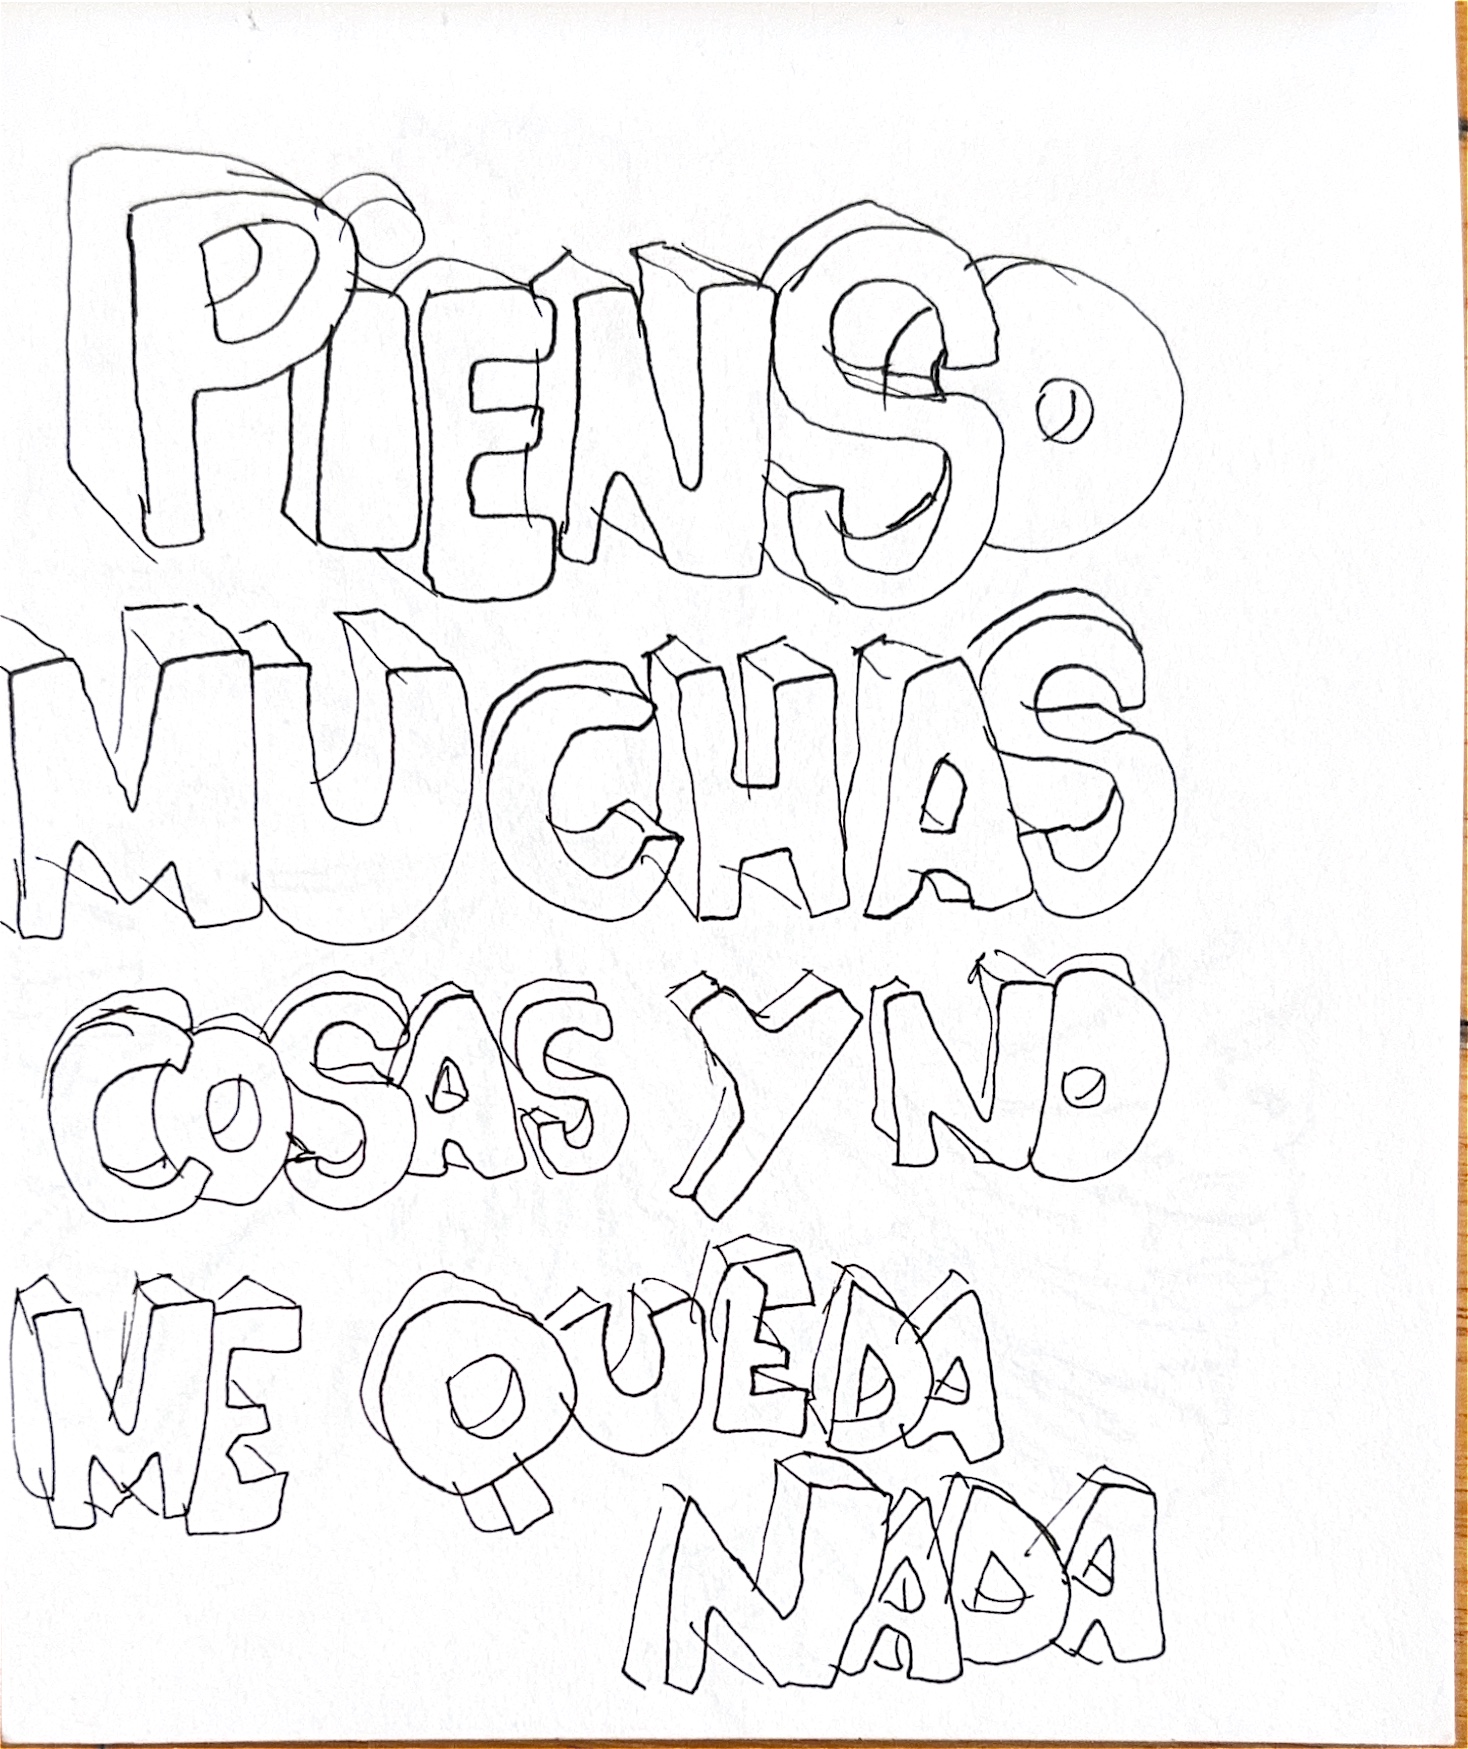 PiENSO
MUCHAS
COSAS Y NO
ME QUEDA
NADA